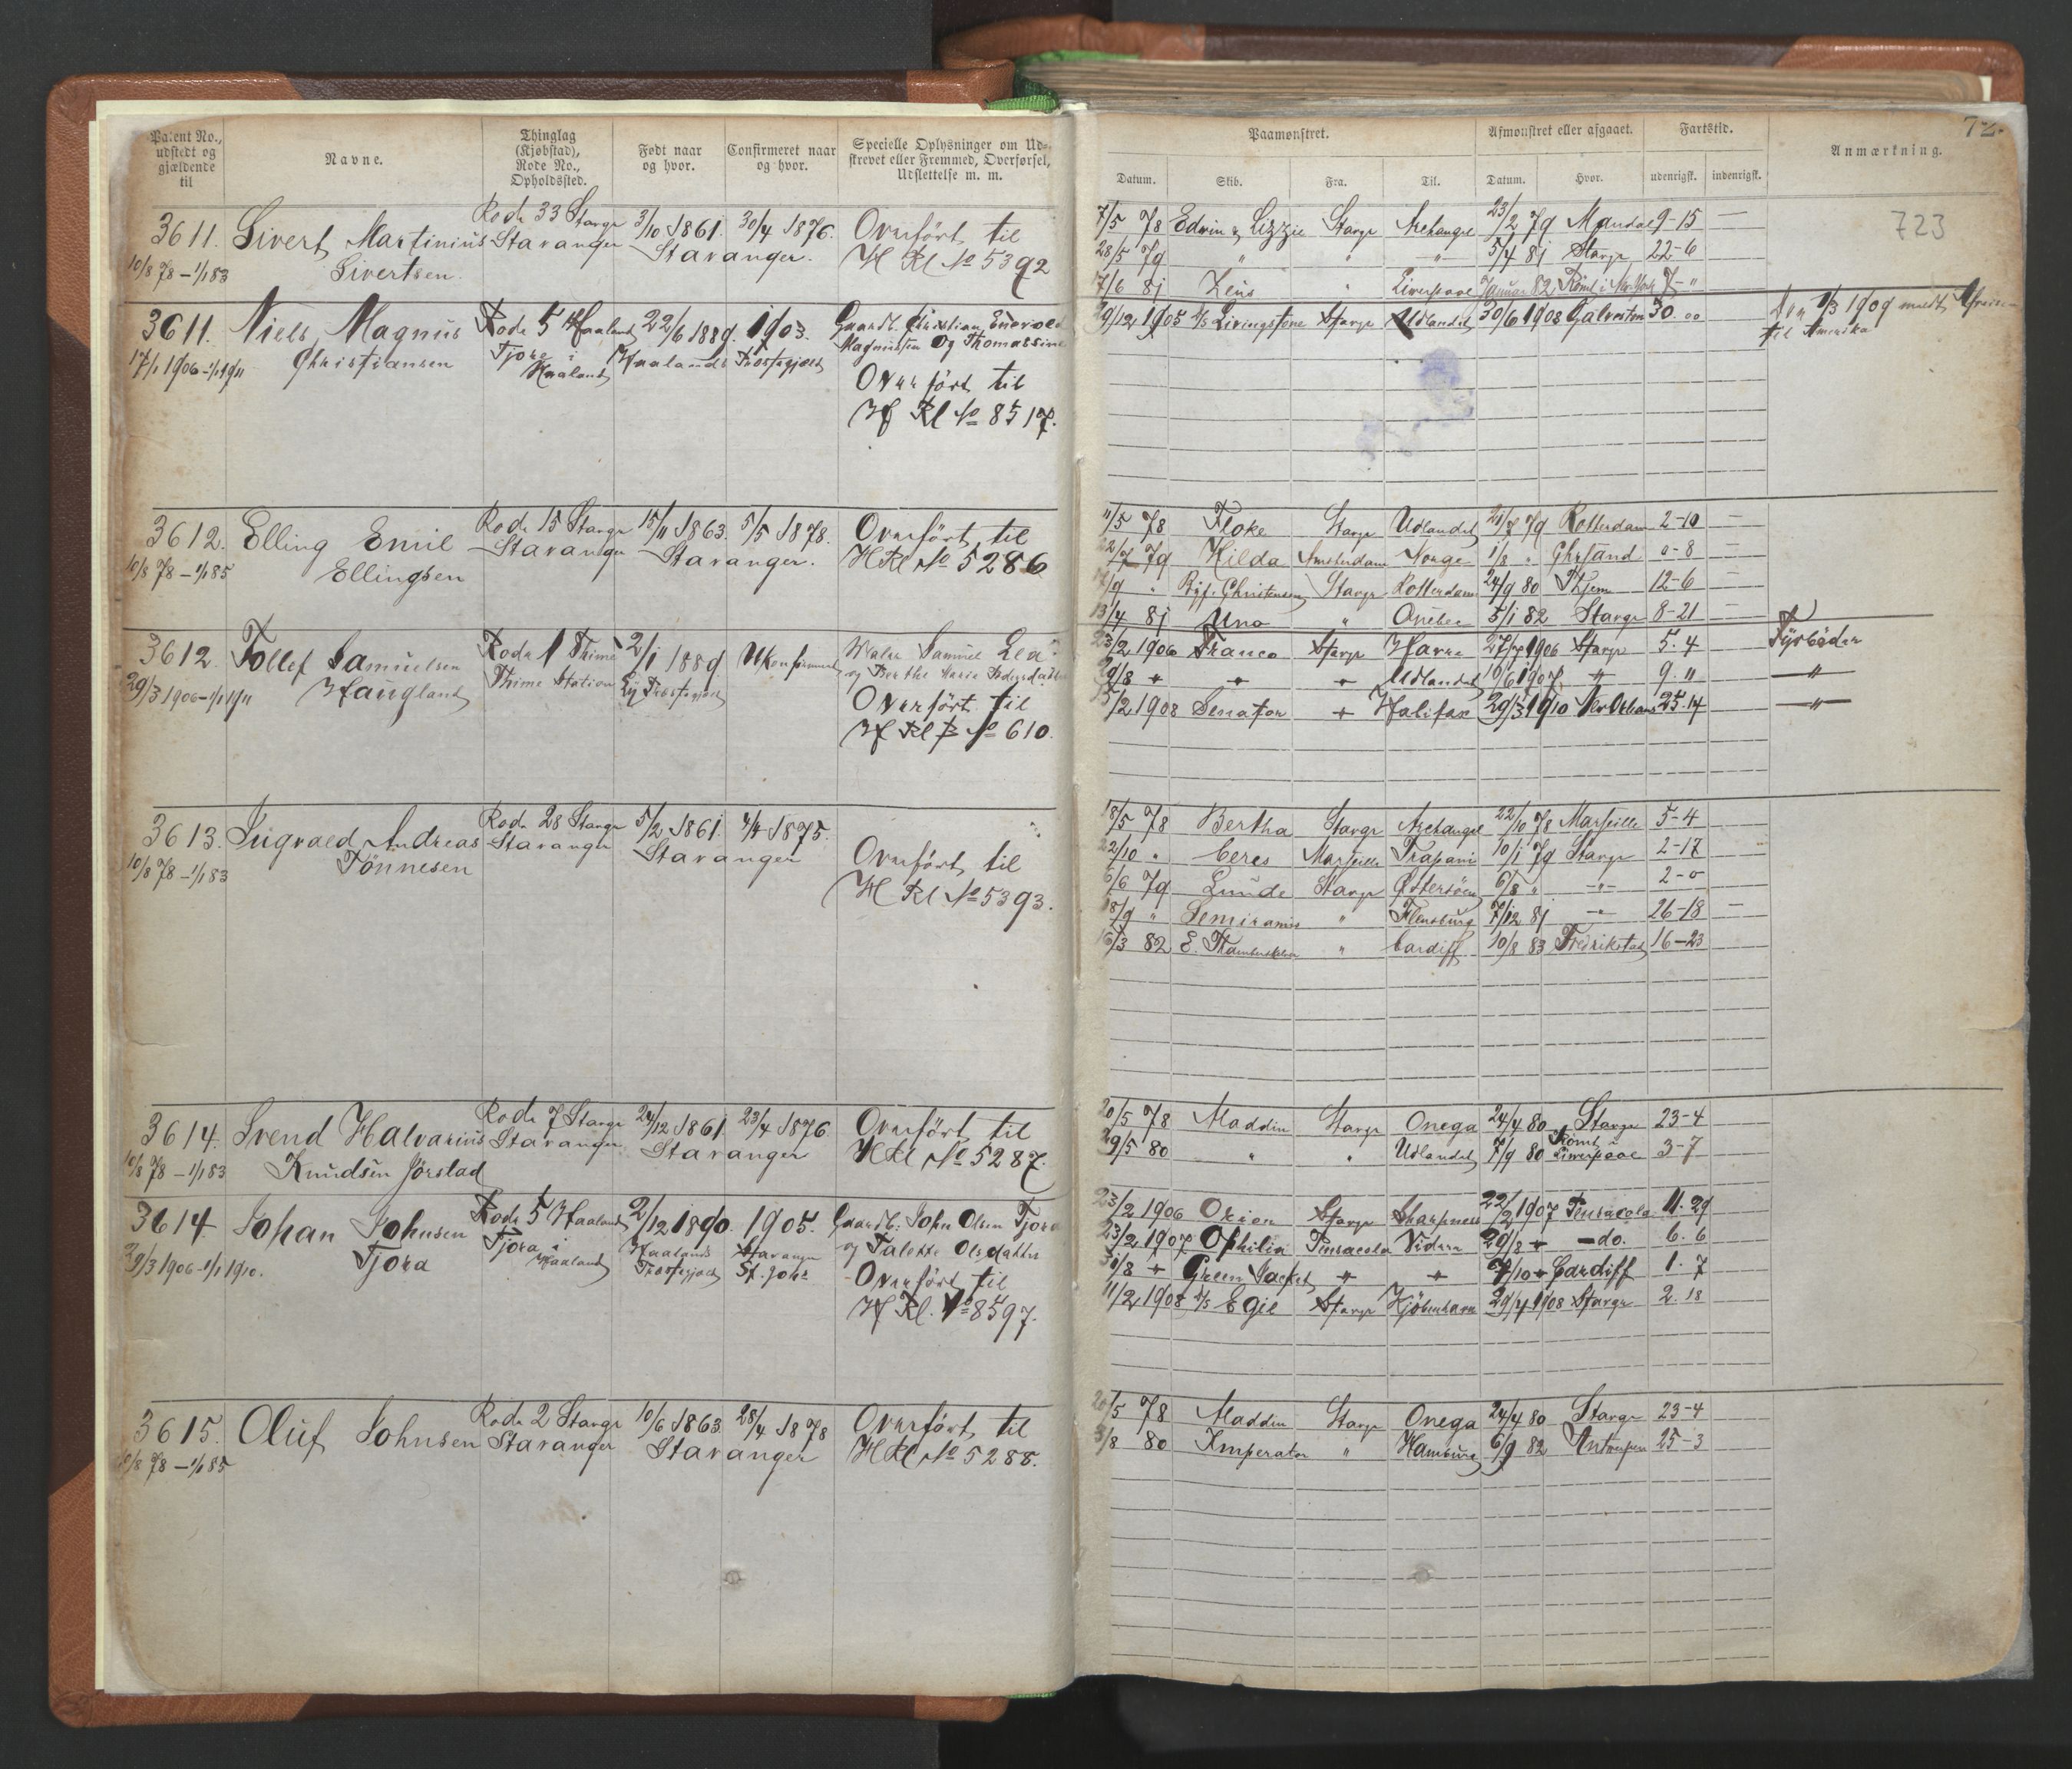 Patent No., udstedt og gjældende til
Navne.
Thinglag (Kjøbstad), Rode No., Opholdssted.
Født naar og hvor.
Confirmeret naar og hvor.
Specielle Oplysninger om Udskrevet eller Fremmed, Overførsel, Udslettelse m. m.
3611. Sivert Martinius Rode 33 Stavgr 3/10 1861. 30/4 1876. Overført til
10/8 78 – 1/1 83 Sivertsen. Stavanger Stavanger. H Rl No 5392
3611. Niels Magnus Rode 5 Haaland 22/6 1889. 1903. Gaardb. Christian Enevold
17/1 1906 – 1/1 1911 Christiansen Tjora i Haaland Haalands Præstegjæld Magnussen og Thomassine
Overført til
H Rl No 8517.
3612. Elling Emil Rode 15 Stavgr 15/11 1863. 5/5 1878. Overført til
10/8 78 – 1/1 85 Ellingsen Stavanger Stavanger. H Rl No 5286
3612. Tollef Samuelsen Rode 1 Thime 2/1 1889 Ukonfirmeret Samuel Lea
29/3 1906 – 1/1 1911 Haugland Thime Station Ly Præstegjeld og Berthe Marie
Overført til
H Rl B No 610.
3613. Ingvald Andreas Rode 28 Stavgr 5/2 1861. 4/4 1875.
10/8 78 – 1/1 83 Tönnesen Stavanger Stavanger Overført til
H Rl No 5393.
3614. Svend Halvarius Rode 7 Stavgr 24/12 1861. 23/4 1876 Overført til
10/8 78 – 1/1 83 Knudsen Jörstad Stavanger Stavanger H Rl No 5287.
3614. Johan Johnsen Rode 5 Haaland 2/12 1890. 1905. Gaardb. John Olsen Tjora
29/3 1906 – 1/1 1910. Tjora Tjora i Haaland Haalands Præstegjæld Stavanger St. Joh: og Talette Olsdatter
Overført til
H Rl. No 8597.
3615. Oluf Johnsen Rode 2 Stavgr 10/6 1863 28/4 1878 Overført til
10/8 78 – 1/1 85 Stavanger Stavanger H Rl No 5288.
72.
Paamønstret.
Afmønstret eller afgaaet.
Fartstid.
Anmærkning.
Datum. Skib. Fra. Til. Datum. Hvor. udenrigsk. indenrigsk.
723
7/5 78 Edwin & Lizzie Stavgr Archangel 23/2 79 Mandal 9-15 —
28/5 79 " " " 5/4 81 Stavgr 22-6 —
7/6 81 Zeus " Liverpool Januar 82 Römt i New York 7-"
29/12 1905 S/S Livingstone Stavgr Udlandet 30/6 1908 Galveston 30.00 1/3 1909 meldt Afreise
til Amerika
11/5 78 Floke Stavgr Udlandet 21/7 79 Rotterdam 2-10 —
22/7 79 Hilda Amsterdam Norge 1/8 " Chrsand 0-8 —
" Christensen Stavgr Rotterdam 24/9 80 Hjem 12-6 —
13/4 81 Uno " Quebec 5/1 82 Stavgr 8-21 —
23/2 1906 Franco Stavgr Havre 27/7 1906 Stavgr 5.4 Fyrböder
29/8 " " " Udlandet 9/6 1907 " 9." — " —
15/2 1908 Senator " Halifax 29/3 1910 New Orleans 25.14 — " —
18/5 78 Bertha Stavgr Archangel 22/10 78 Marseille 5-4
22/10 " Ceres Marseille Trapani 10/1 79 Stavgr 2-17
6/6 79 Lunde Stavgr Østersöen 6/8 " — " — 2-0
18/9 " Semiramis " Flensburg 7/12 81 — " — 26-18 —
16/3 82 E. Thambarskelver " Cardiff 10/8 83 Fredrikstad 16-23
20/5 78 Aladdin Stavgr Onega 24/4 80 Stavgr 23-4
29/5 80 " " Udlandet 7/9 80 Römt i Liverpool 3-7
23/2 1906 Orion Stavgr Sharpness 22/2 1907 Pensacola 11.29
23/2 1907 Ophilia Pensacola 29/8 " — do. 6.6
31/8 " Green Jacket " " 7/10 " Cardiff 1.7
11/2 1908 S/S Egil Stavgr Kjöbenhavn 29/4 1908 Stavgr 2.18
20/5 78 Aladdin Stavgr Onega 24/4 80 Stavgr 23-4
3/8 80 Imperator " Hamburg 6/9 82 Antwerpen 25-3